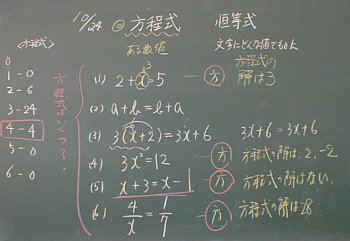 10/24 方程式 恒等式
ある数値 文字にどんな値でもOK
<方程式>
0
1-0
2-6
3-24
4-4
5-0
6-0
方程式はいくつ?
3
(1) 2+x=5 方 方程式の解は3
(2) a+b=b+a
(3) 3(x+2)=3x+6 3x+6=3x+6
(4) 3x²=12 方 方程式の解は2,-2
(5) x+3=x-1 方 方程式の解はない.
(6) 4/x=1/7 方 方程式の解は28